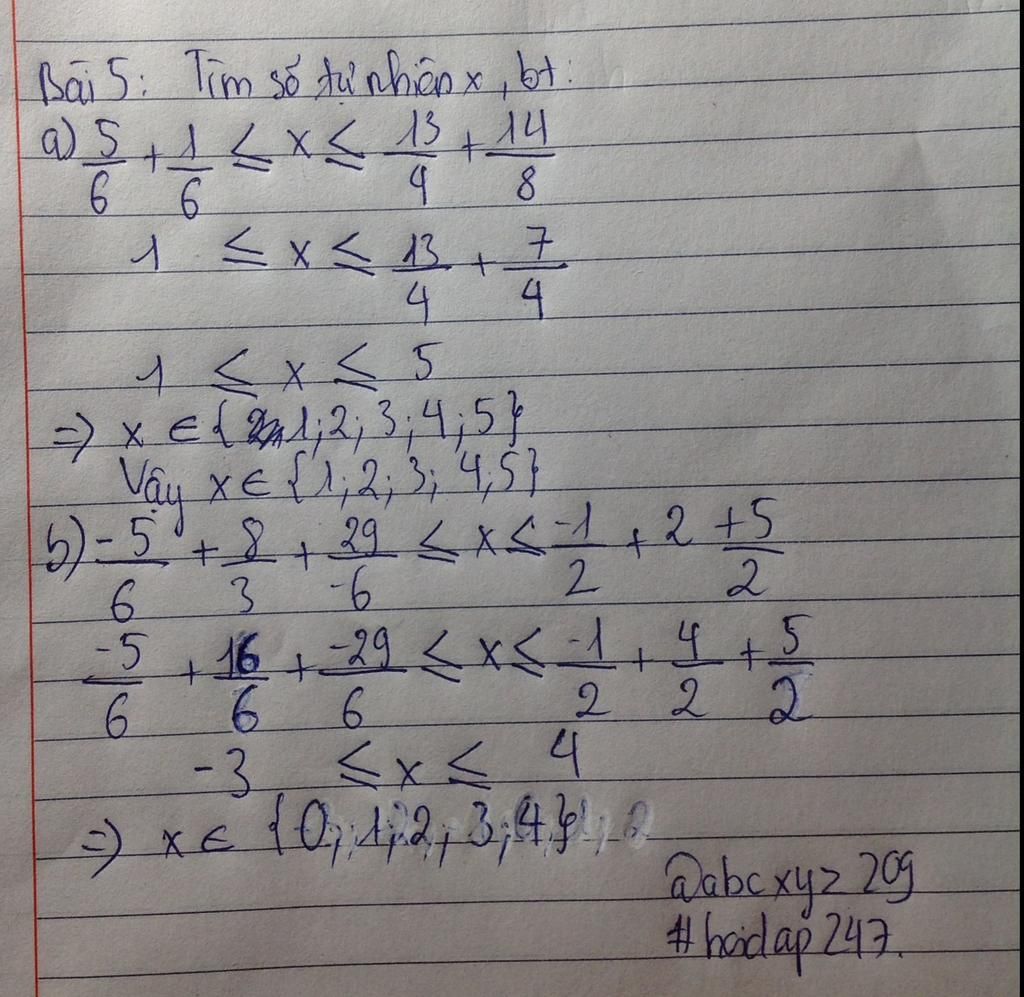 Bài 5: Tìm số tự nhiên x, bt:
a) 5/6 + 1/6 ≤ x ≤ 13/4 + 14/8
1 ≤ x ≤ 13/4 + 7/4
1 ≤ x ≤ 5
=> x ∈ {1; 2; 3; 4; 5}
Vậy x ∈ {1; 2; 3; 4; 5}
b) -5/6 + 8/3 + 29/-6 ≤ x ≤ -1/2 + 2 + 5/2
-5/6 + 16/6 + -29/6 ≤ x ≤ -1/2 + 4/2 + 5/2
-3 ≤ x ≤ 4
=> x ∈ {0; 1; 2; 3; 4}
@abcxyz209
#hoidap247.